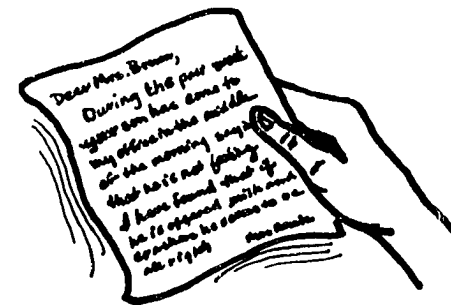 Dear Mrs. Brown,
During the past week
your son has come to
my office in the middle
of the morning saying
that he is not feeling
I have found that if
he is offered milk and
crackers he seems to be
all right